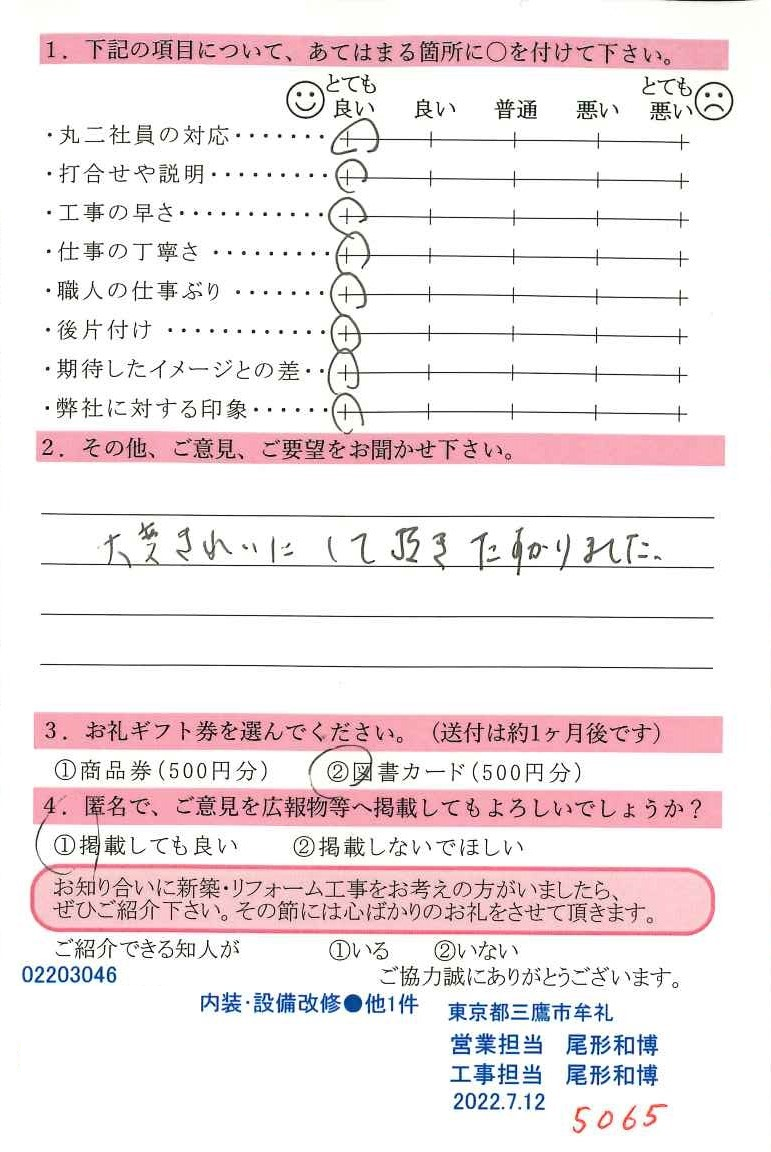 1．下記の項目について、あてはまる箇所に○を付けて下さい。
とても良い 良い 普通 悪い とても悪い
・丸二社員の対応・・・・・・・
・打合せや説明・・・・・・・・・
・工事の早さ・・・・・・・・・・・
・仕事の丁寧さ・・・・・・・・・
・職人の仕事ぶり・・・・・・・
・後片付け・・・・・・・・・・・・
・期待したイメージとの差・・
・弊社に対する印象・・・・・・
2．その他、ご意見、ご要望をお聞かせ下さい。
大変きれいにして頂きたすかりました。
3．お礼ギフト券を選んでください。（送付は約1ヶ月後です）
①商品券（500円分） ②図書カード（500円分）
4．匿名で、ご意見を広報物等へ掲載してもよろしいでしょうか？
①掲載しても良い ②掲載しないでほしい
お知り合いに新築・リフォーム工事をお考えの方がいましたら、
ぜひご紹介下さい。その節には心ばかりのお礼をさせて頂きます。
ご紹介できる知人が ①いる ②いない
02203046 ご協力誠にありがとうございます。
内装・設備改修●他1件 東京都三鷹市牟礼
営業担当 尾形和博
工事担当 尾形和博
2022.7.12
5065